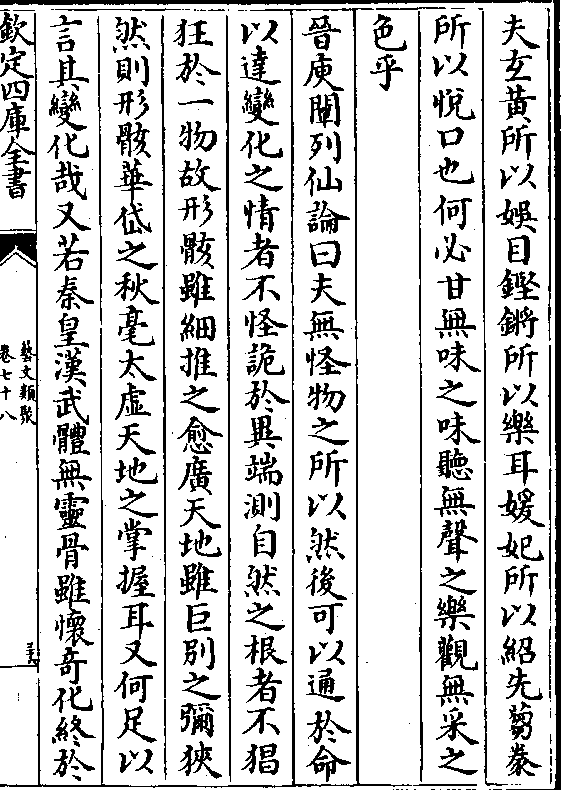 夫玄黃所以娛目鏗鏘所以樂耳媛妃所以紹先芻豢
所以悅口也何必甘無味之味聽無聲之樂觀無采之
色乎
晉庾闡列仙論曰夫無怪物之所以然後可以通於命
以達變化之情者不怪詭於異端測自然之根者不猖
狂於一物故形骸雖細推之愈廣天地雖巨別之彌狹
然則形骸華岱之秋毫太虛天地之掌握耳又何足以
言其變化哉又若秦皇漢武體無靈骨雖懷奇化終於
欽定四庫全書
藝文類聚
卷七十八